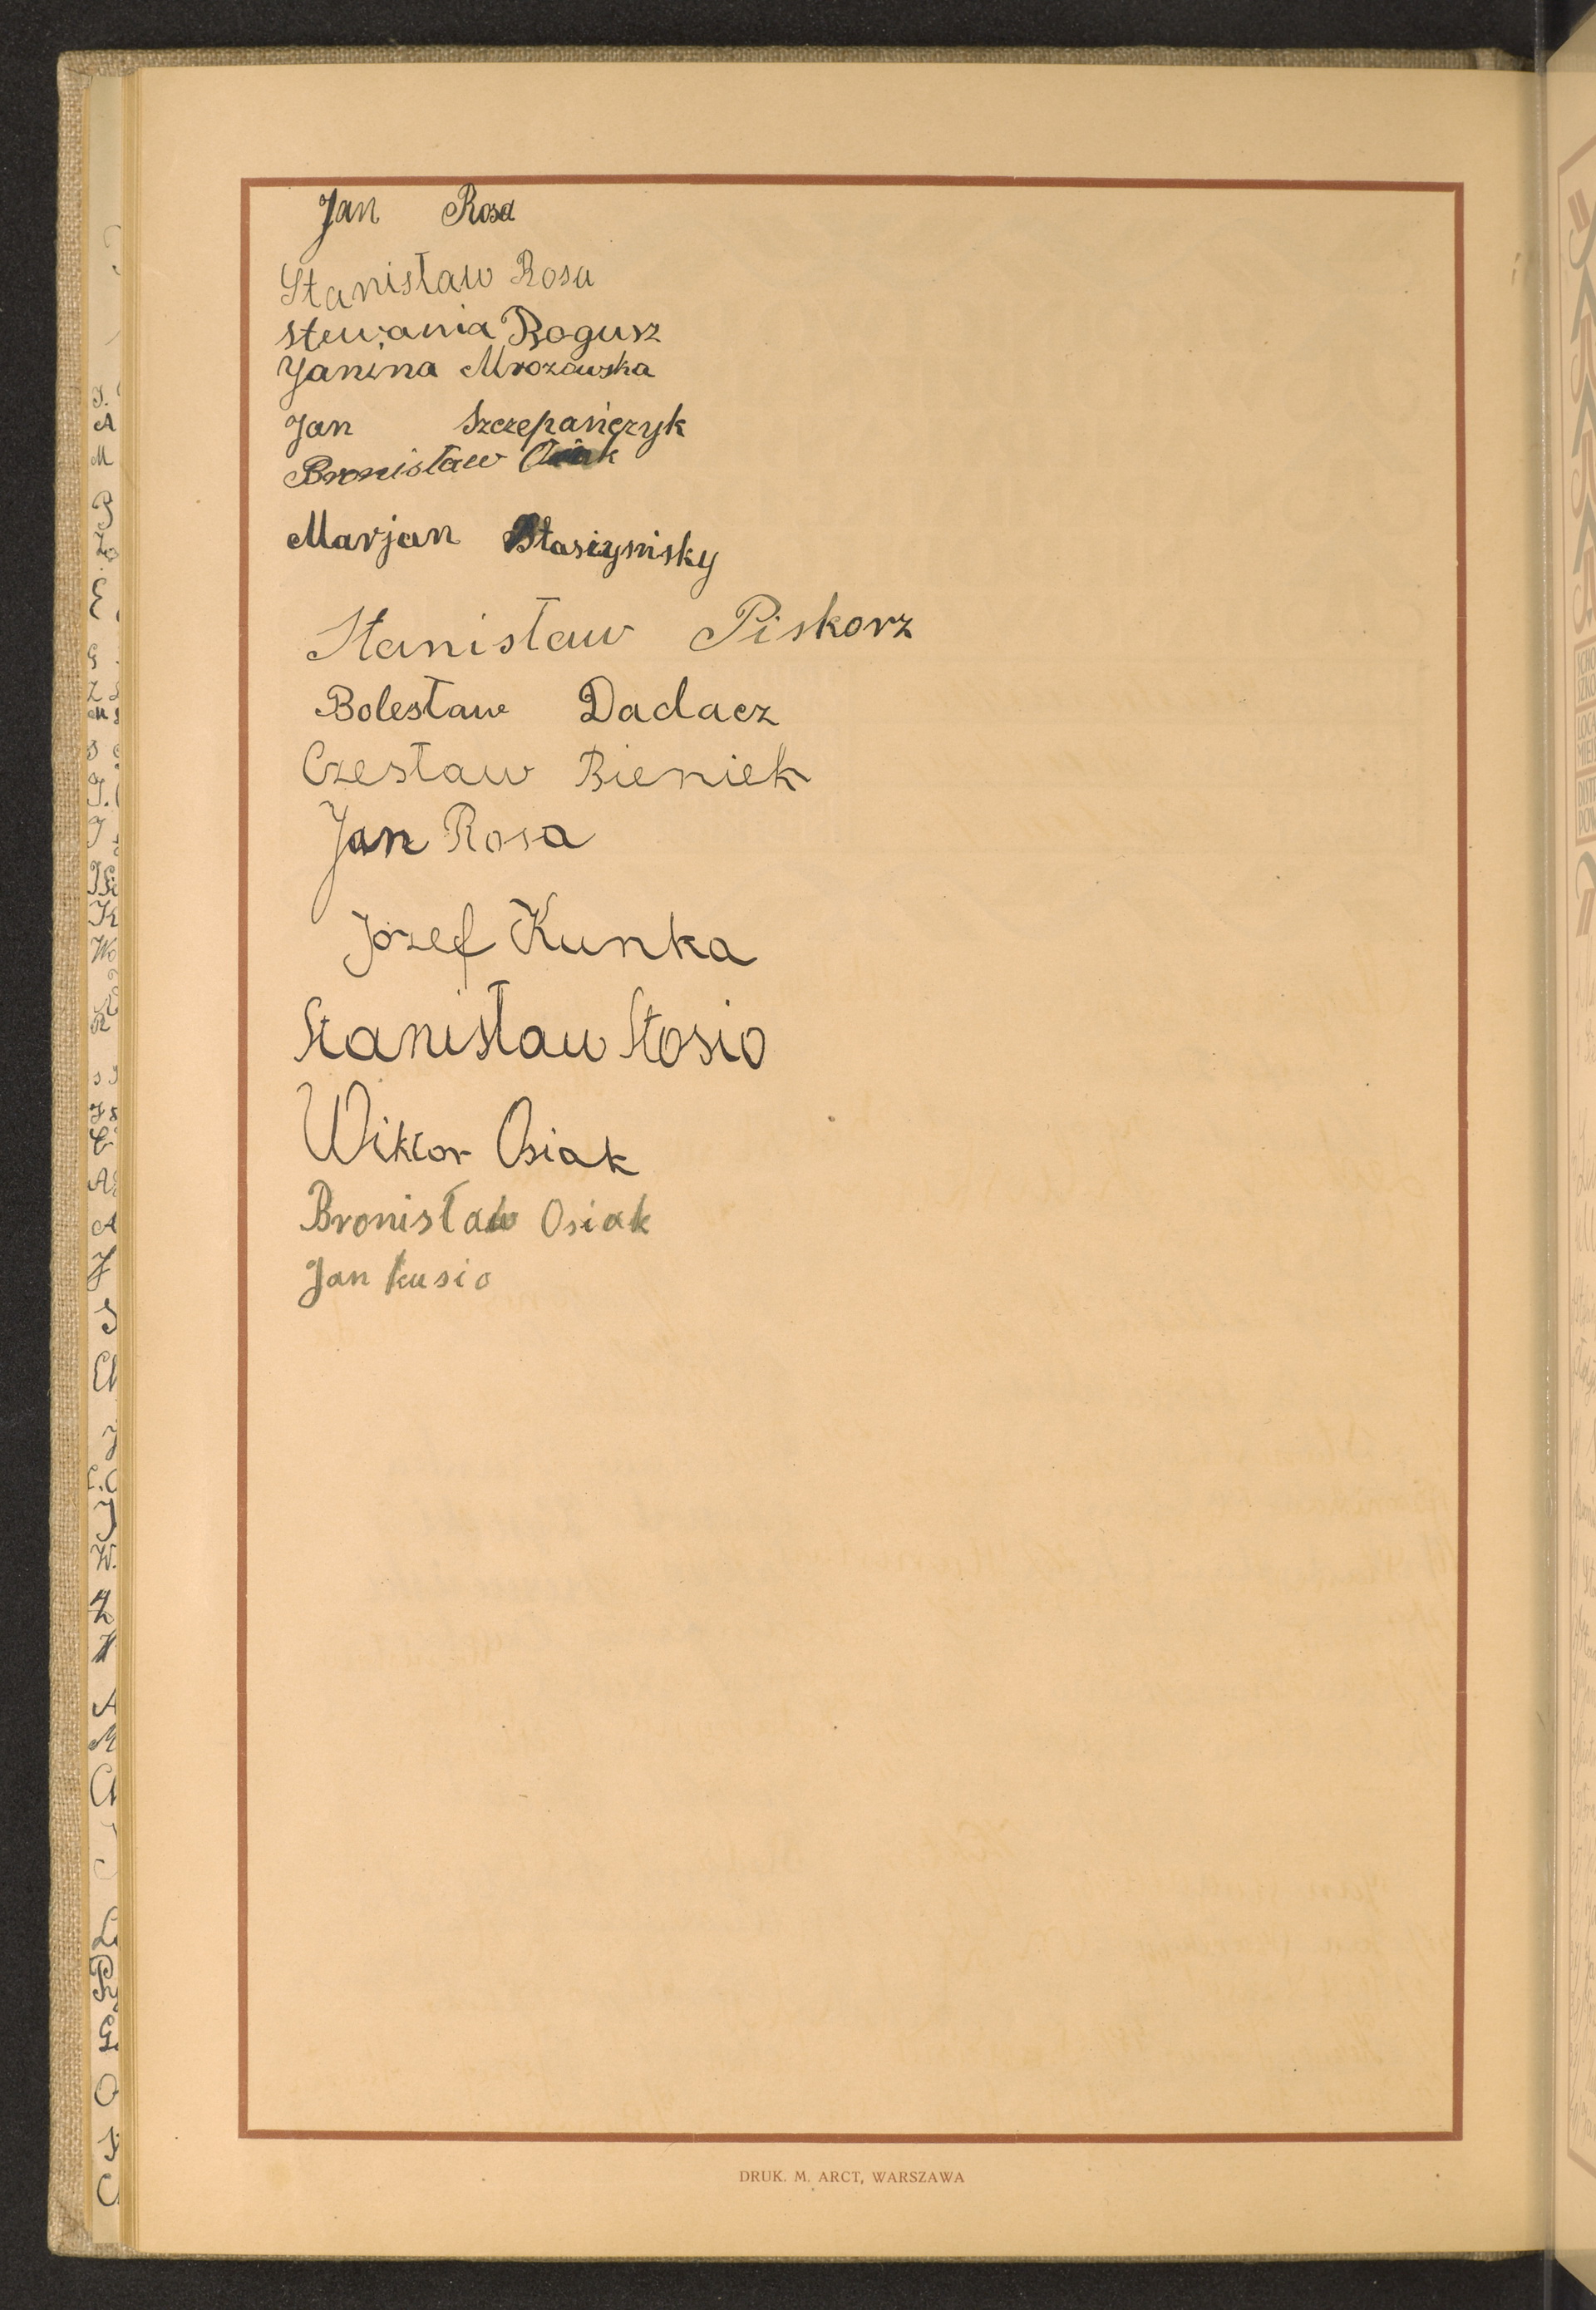 Jan Rosa
Stanisław Rosa
Stewania Rogusz
Janina Mrozowska
Jan Szczepańczyk
Bronisław
Marjan
Stanisław Piskorz
Bolesław Dadacz
Czesław Bieniek
Jan Rosa
Józef Kunka
Stanisław Stosio
Wiktor Osiak
Bronisław Osiak
Jan Kusio
DRUK. M. ARCT, WARSZAWA